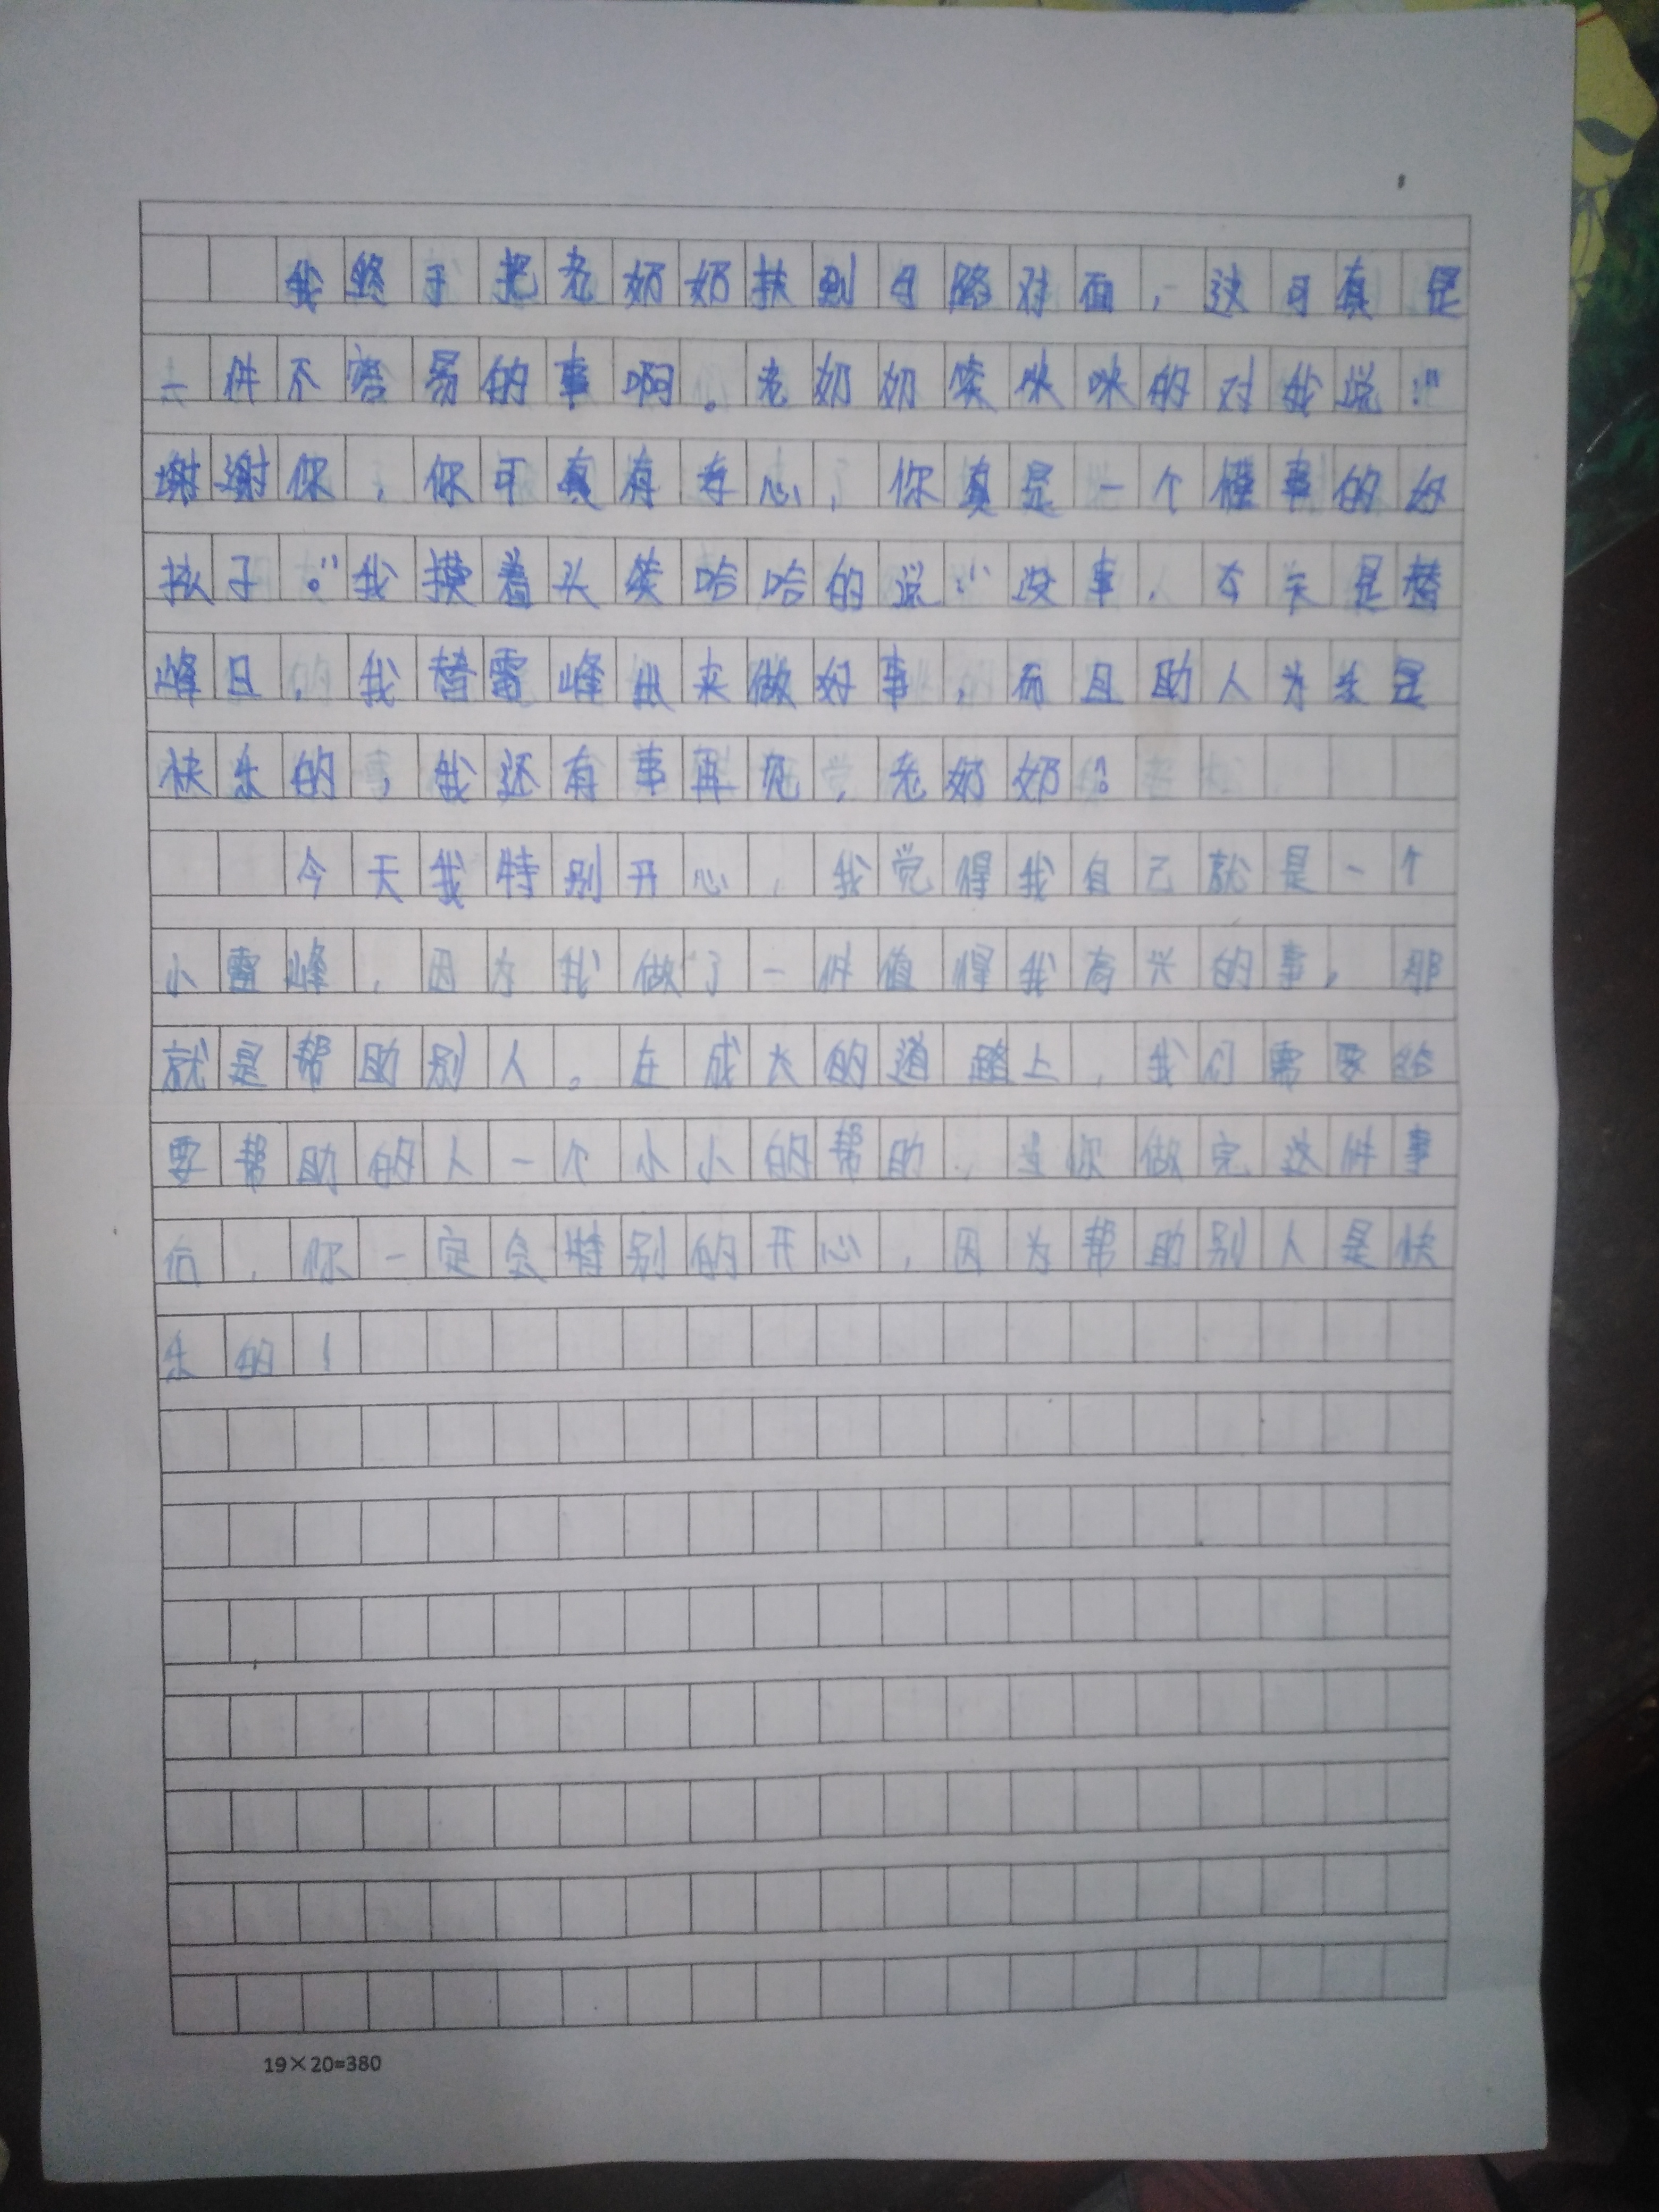 我终于把老奶奶扶到马路对面，这可真是
一件不容易的事啊。老奶奶笑咪咪的对我说：“
谢谢你，你可真有孝心，你真是一个懂事的好
孩子。”我摸着头笑哈哈的说：“没事，今天是替
峰日，我替雷峰出来做好事，而且助人为乐是
快乐的，我还有事再见，老奶奶”。
今天我特别开心，我觉得我自己就是一个
小雷峰，因为我做了一件值得我高兴的事，那
就是帮助别人。在成长的道路上，我们需要给
要帮助的人一个小小的帮助，当你做完这件事
后，你一定会特别的开心，因为帮助别人是快
乐的！
19×20=380